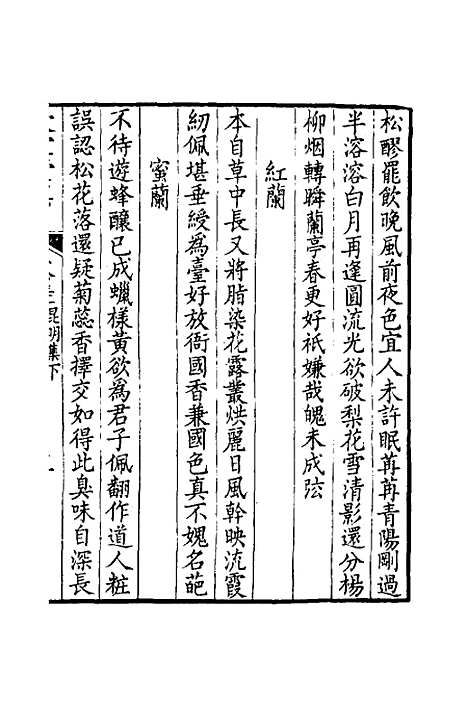 松醪罷飲晚風前夜色宜人未許眠苒苒青陽剛過
半溶溶白月再逢圓流光欲破梨花雪清影還分楊
柳烟轉瞬蘭亭春更好祇嫌哉魄未成弦
紅蘭
本自草中長又將脂染花露叢烘麗日風幹映流霞
紉佩堪垂綬爲臺好放衙國香兼國色真不媿名葩
蜜蘭
不待遊蜂釀已成蠟樣黃欲爲君子佩翻作道人粧
誤認松花落還疑菊蕊香擇交如得此臭味自深長
昆明集下